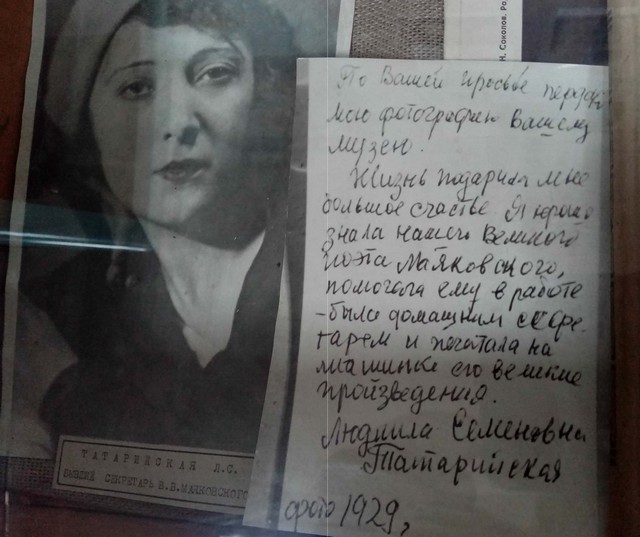 Н. Соколов. Ро
По Вашей просьбе передаю
мою фотографию Вашему
музею.
Жизнь подарила мне
большое счастье. Я хорошо
знала нашего Великого
поэта Маяковского,
помогала ему в работе
-была домашним секре-
тарем и печатала на
машинке его великие
произведения.
Людмила Семеновна
Татарийская
фото 1929,
ТАТАРИЙСКАЯ Л.С.
БЫВШИЙ СЕКРЕТАРЬ В.В.МАЯКОВСКОГО